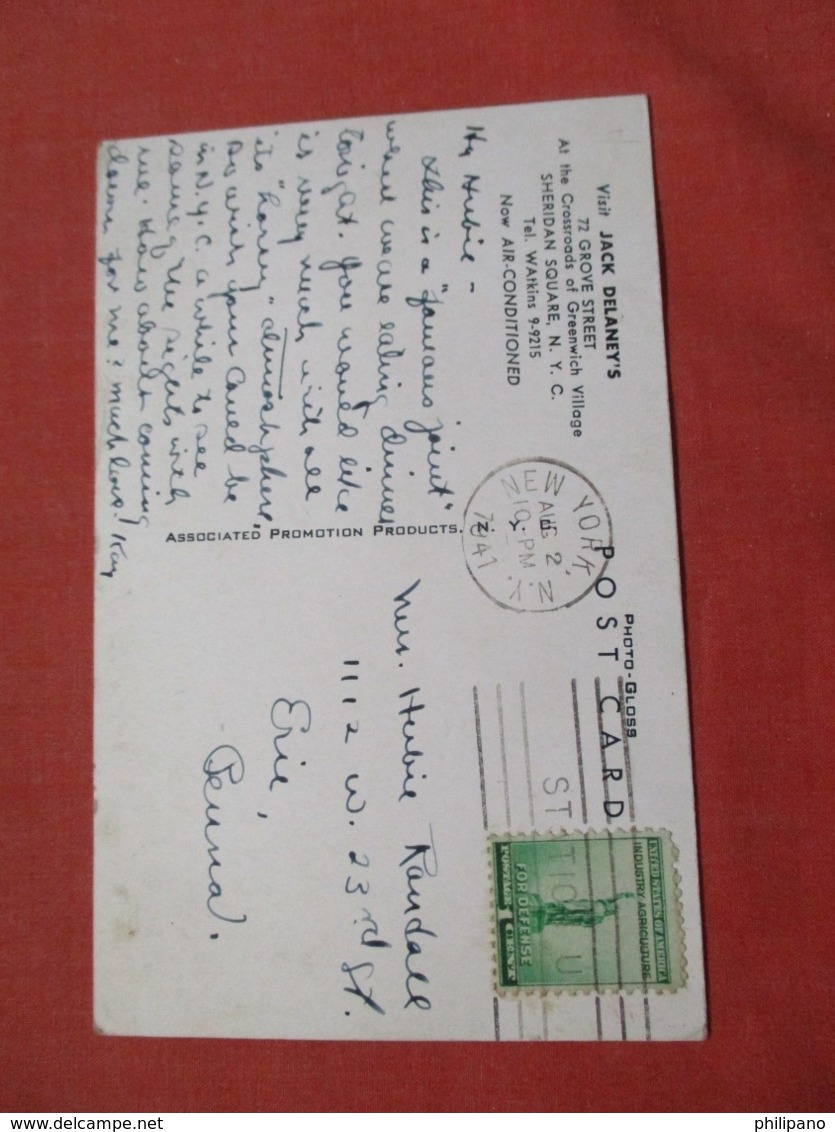 Visit JACK DELANEY'S
72 GROVE STREET
At the Crossroads of Greenwich Village
SHERIDAN SQUARE, N. Y. C.
Tel. WAtkins 9-9215
Now AIR-CONDITIONED
Hy Hubie -
This is a "famous joint"
where we are eating dinner
tonight. You would like
it very much with all
its "horsey" atmosphere,
So wish you could be
in N.Y.C. a while to see
some of the sights with
me. How about coming
down for me? Much love! Kay
ASSOCIATED PROMOTION PRODUCTS, N. Y.
PHOTO-GLOSS
POST CARD
NEW YORK, N.Y.
AUG 2
10 PM
1941
STATION U
UNITED STATES OF AMERICA
INDUSTRY AGRICULTURE
FOR DEFENSE
POSTAGE 1 CENT
Mrs. Hubie Randall
1112 W. 23rd St.
Erie,
Penna.
philipano